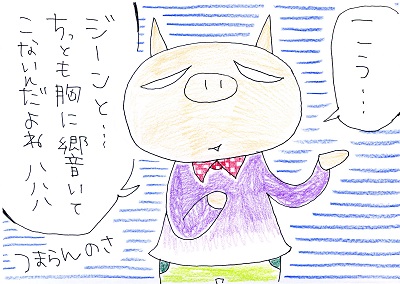 こう…
ジーンと…
ちっとも胸に響いて
こないんだよね ハハハ
つまらんのさ